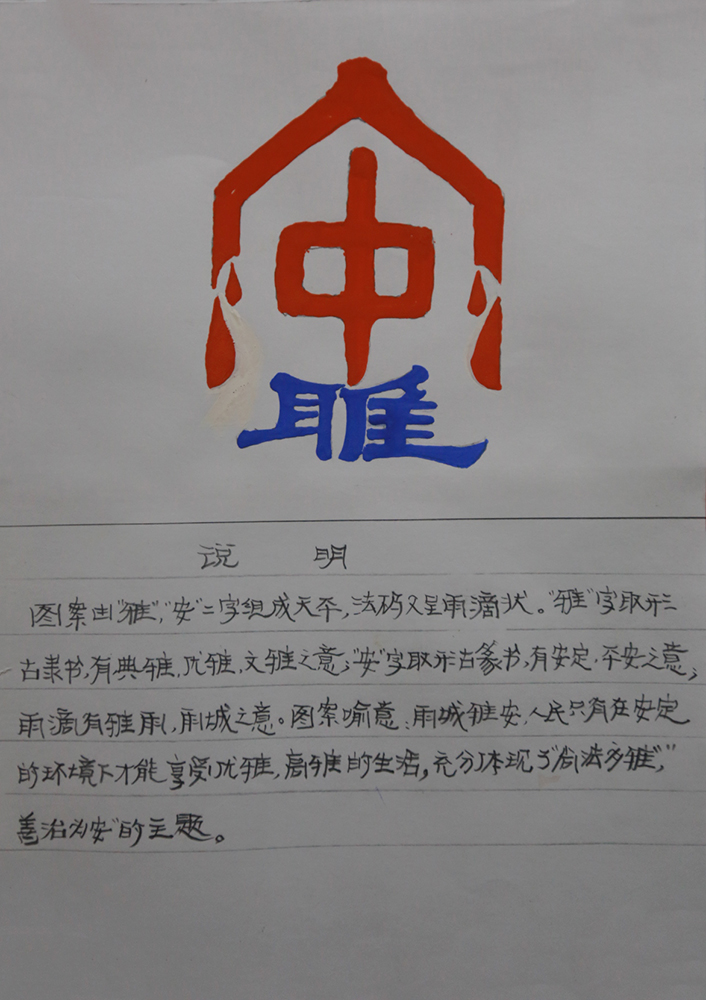 安
雅
说 明
图案由"雅","安"二字组成天平,法码又呈雨滴状。"雅"字取形
古隶书,有典雅,优雅,文雅之意;"安"字取形古篆书,有安定,平安之意;
雨滴有雅雨,雨城之意。图案喻意:雨城雅安,人民只有在安定
的环境下才能享受优雅,高雅的生活,充分体现了"尚法为雅","
善治为安"的主题。